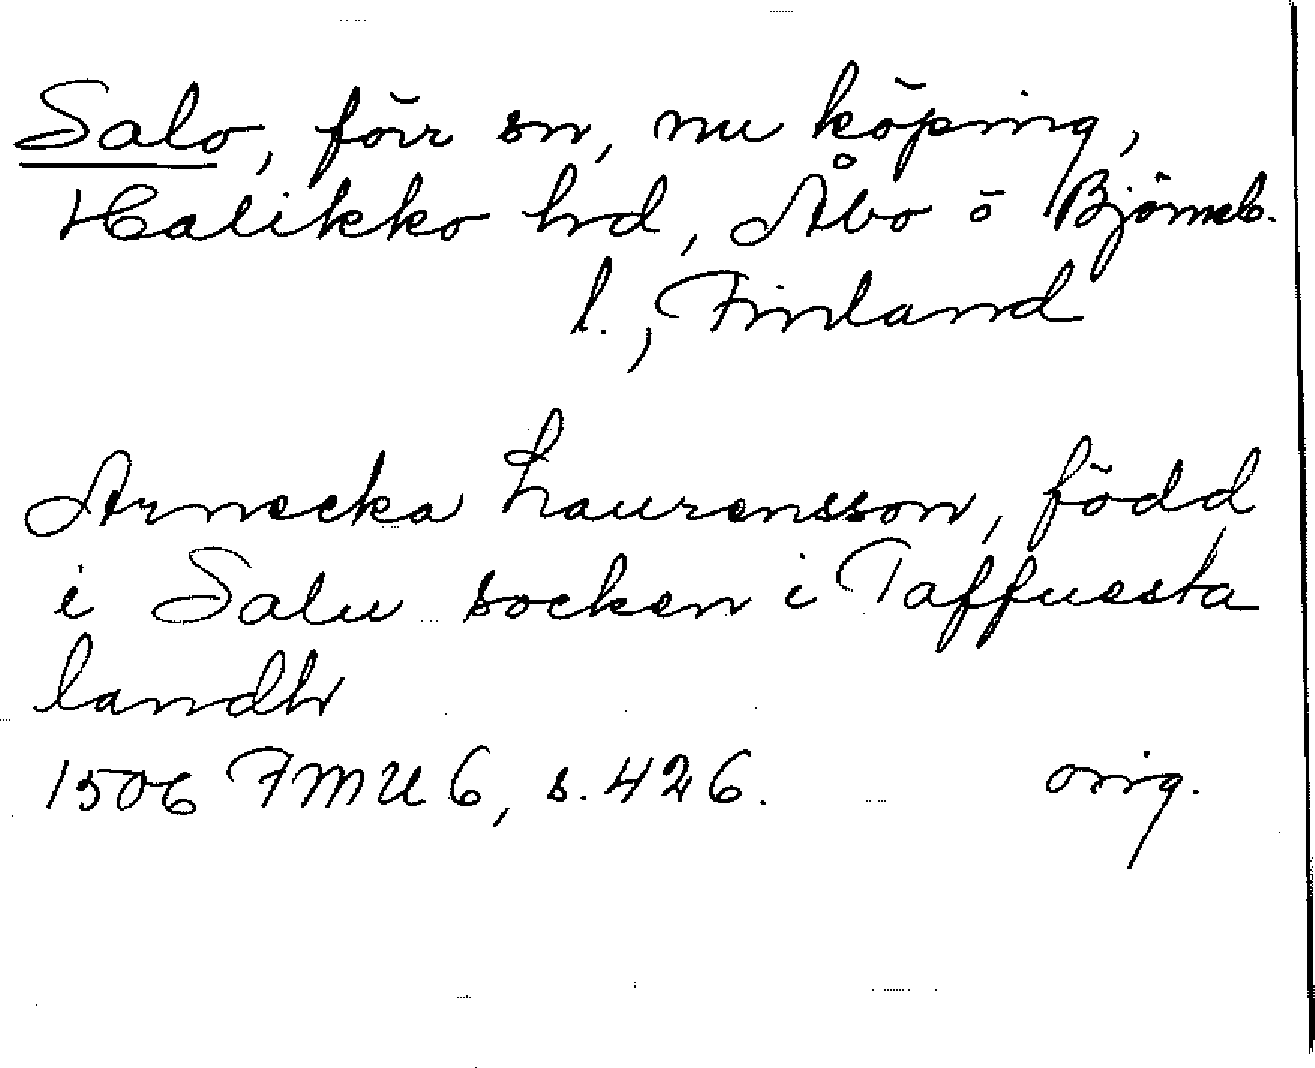 Salo, förr sn, nu köping,
Halikko hrd, Åbo ö Björneb.
l., Finland
Arnecka Laurensson, född
i Salu socken i Taffuesta
landh
1506 FMU 6, s. 426. orig.